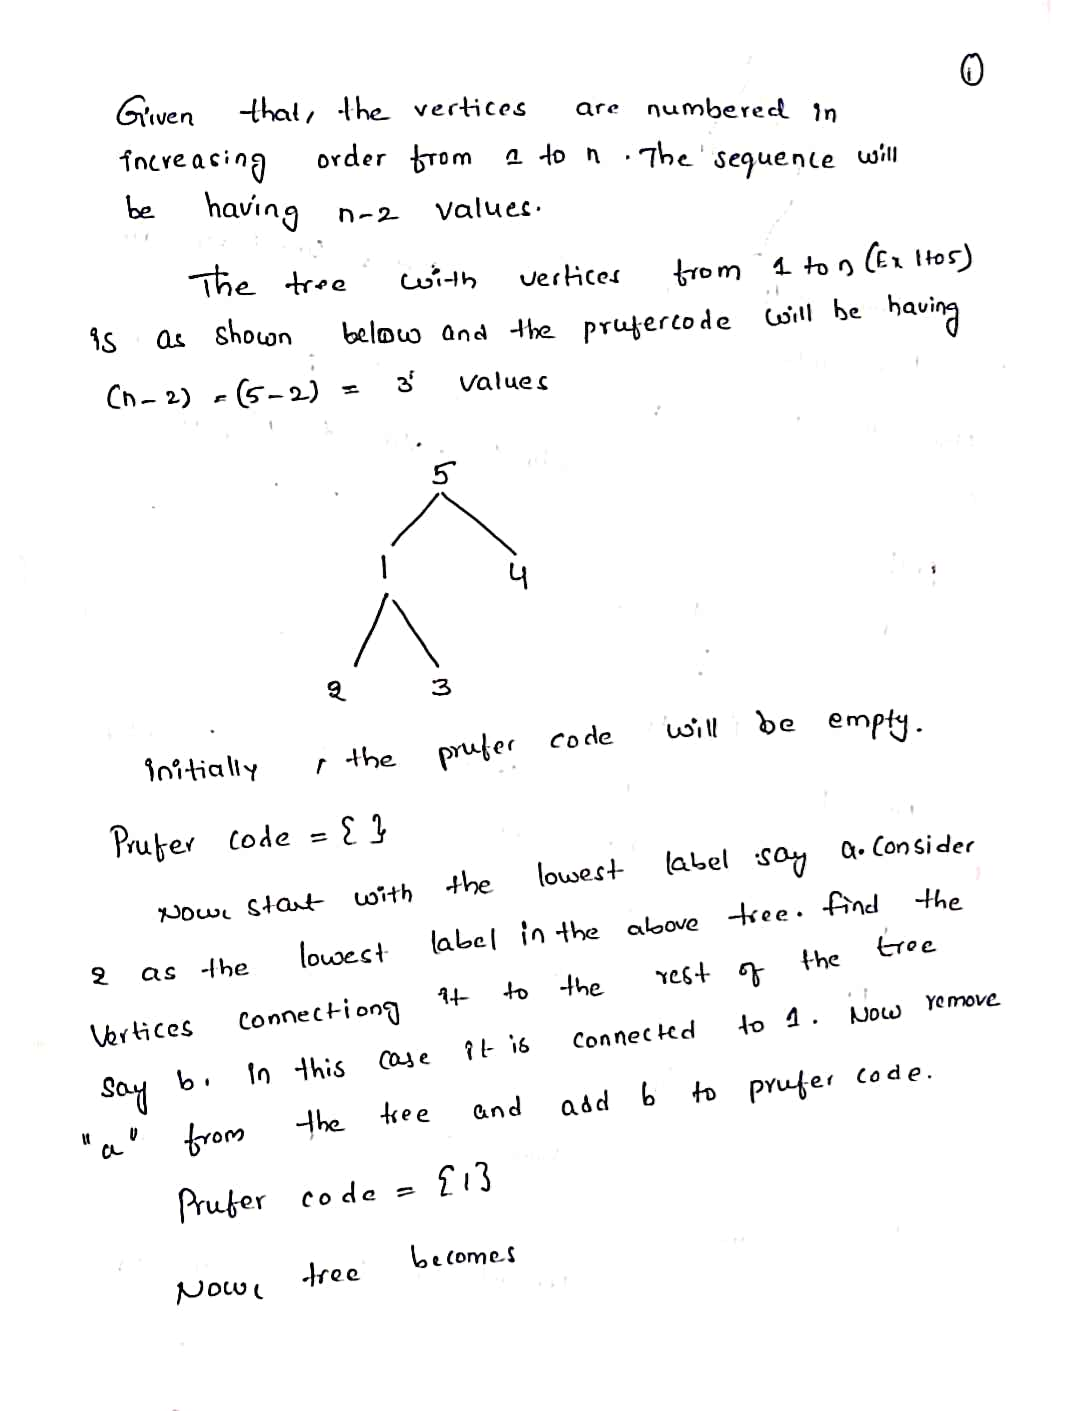 ①
Given that, the vertices are numbered in
increasing order from 1 to n . The sequence will
be having n-2 values.
The tree with vertices from 1 to n (Ex 1to5)
is as shown below and the prufercode will be having
(n-2) = (5-2) = 3 values
5
1 4
2 3
initially, the prufer code will be empty.
Prufer code = { }
Now, start with the lowest label say a. Consider
2 as the lowest label in the above tree. find the
Vertices connectiong it to the rest of the tree
say b. In this case it is connected to 1. Now remove
"a" from the tree and add b to prufer code.
Prufer code = {1}
Now, tree becomes